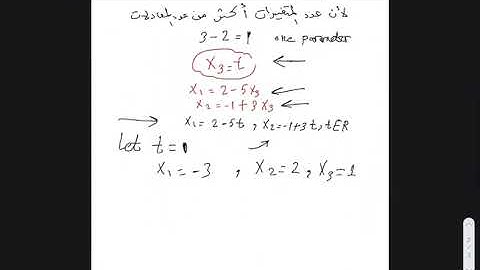 لأن عدد المتغيرات أكثر من عدد المعادلات
3-2=1 one parameter
x₃=t
x₁=2-5x₃
x₂=-1+3x₃
x₁=2-5t, x₂=-1+3t, t∈R
Let t=1
x₁=-3, x₂=2, x₃=1